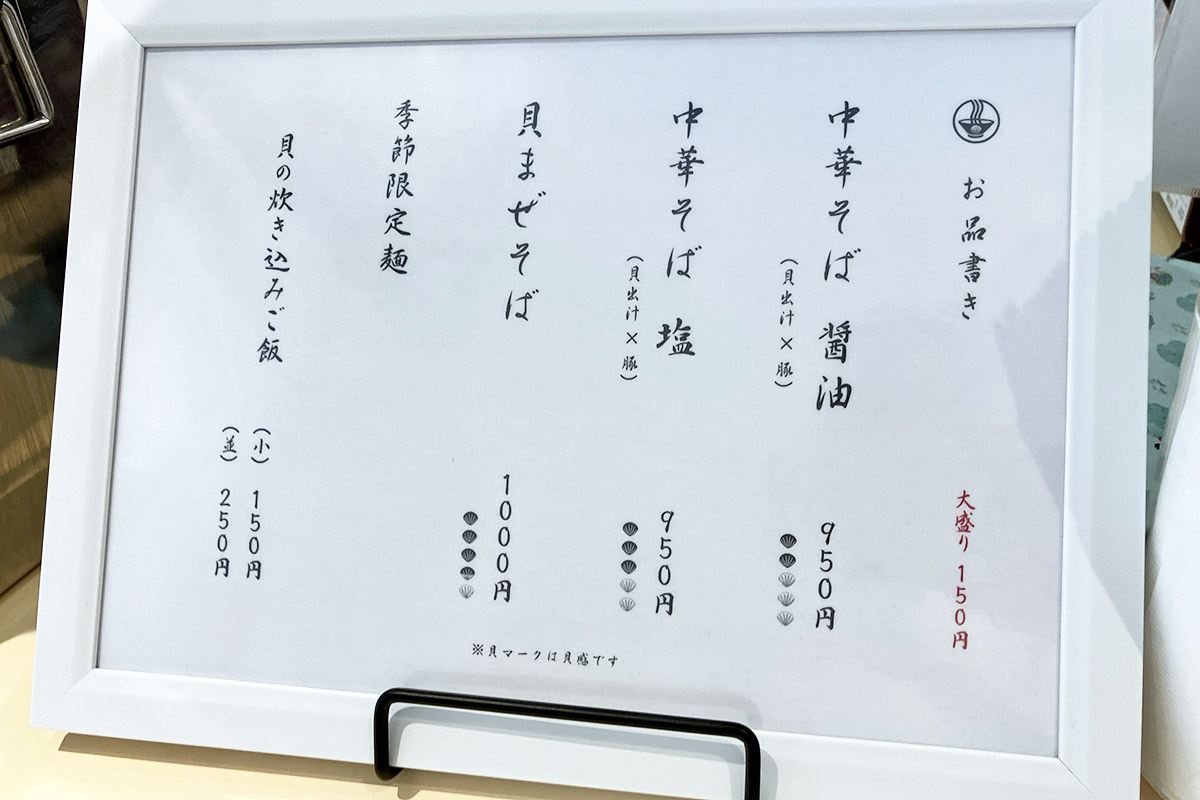 お品書き
大盛り 150円
中華そば 醤油
(貝出汁×豚)
950円
中華そば 塩
(貝出汁×豚)
950円
貝まぜそば
1000円
季節限定麺
貝の炊き込みご飯
(小) 150円
(並) 250円
※貝マークは貝感です